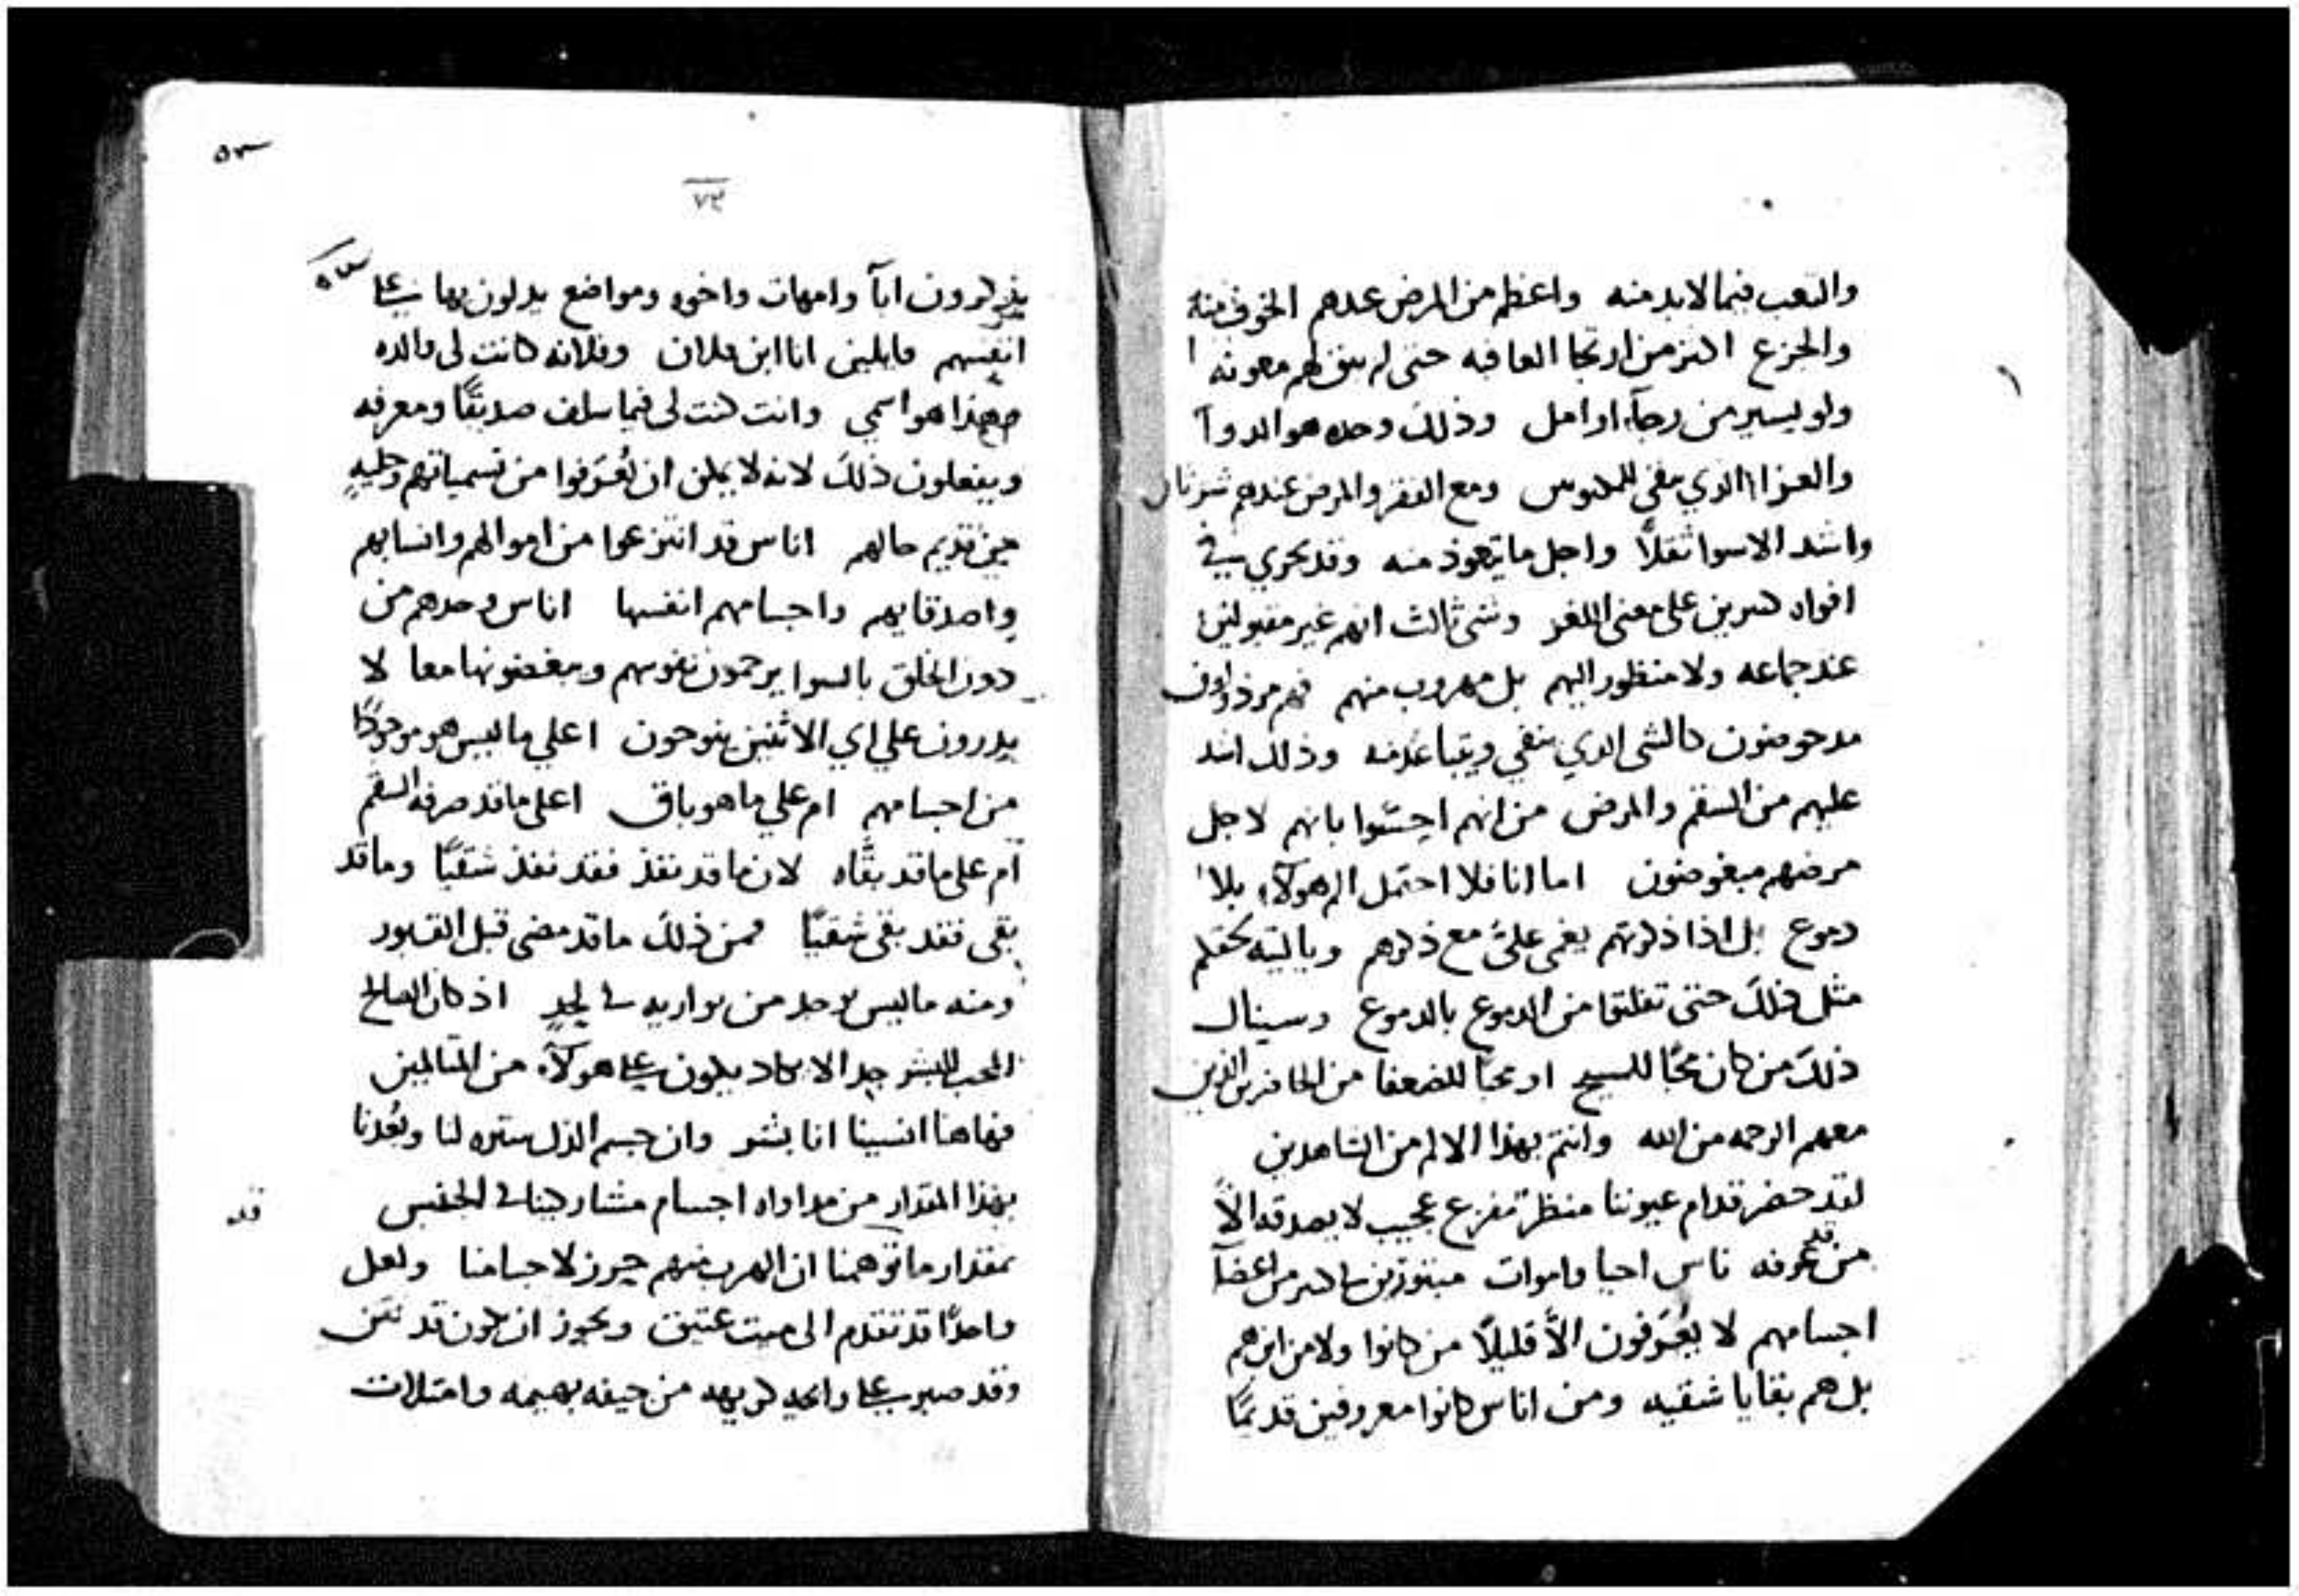 والتعب فيما لابد منه واعظم من المرض عندهم الخوف منه
والجزع اكثر من ارتجا العافيه حتى لم يبق لهم معونه
ولو ليسير من رجآء او امل وذلك وحده هو الدوآ
والعزا الذي مفى للمكبوس ومع الفقر والمرض عندهم شر ثان
واشد الاسوا ثقلاً واجل ما يتعوذ منه وقد يجري في
افواه كثيرين على معنى اللغز وشى ثالث انهم غير مقبولين
عند جماعه ولا منظور اليهم بل مهروب منهم فهم مرذولون
مدحوضون كالشى الدي ينفي ويتباعد منه وذلك اشد
عليهم من السقم والمرض من انهم احسّوا بانهم لاجل
مرضهم مبغوضون اما انا فلا احتمل الم هولآء بلا
دموع بل اذا ذكرتهم يغمى عليَّ مع ذكرهم ويا ليته لحقكم
مثل ذلك حتى تفلتوا من الدموع بالدموع وسينال
ذلك من كان محبًا للمسيح او محبًا للضعفا من الحاضرين الذين
معهم الرحمه من الله وانتم بهذا الالم من الشاهدين
لقد حضر قدام عيوننا منظر مفزع عجيب لا يصدقه الاّ
من قد عرفه ناس احيا واموات مبتورين في اكثر من اعضآ
اجسامهم لا يُعرَفون الاّ قليلاً من كانوا ولا من اين هم
بل هم بقايا شقيه ومن اناس كانوا معروفين قديمًا
٥٣
٧٢
يذكرون ابآ وامهات واخوه ومواضع يدلون بها على
انفسهم قايلين انا ابن فلان وفلانه كانت لى والده
وهذا هو اسمي وانت كنت لى فيما سلف صديقًا ومعرفه
ويفعلون ذلك لانه لا يمكن ان يُعرَفوا من تسمياتهم وحليهِ
من قديم حالهم اناس قد انتزعوا من اموالهم وانسابهم
واصدقايهم واجسامهم انفسها اناس وحدهم من
دون الخلق بالسوا يرحمون نفوسهم ويبغضونها معا لا
يدرون علي اي الاثنين ينوحون اعلي ما ليس هو موجودًا
من اجسامهم ام علي ما هو باق اعلى ما قد صرفه السقم
ام على ما قد بقَّاه لان ما قد نفذ فقد نفذ شقيًا وما قد
بقى فقد بقى شقيًا فمن ذلك ما قد مضى قبل القبور
ومنه ما ليس يوجد من يواريه في لحدٍ اذ كان الصالح
المحب للبشر جدا لا يكاد يكون على هوكآء من المتالمين
فهاهنا انسينا انا بشر وان جسم الذل ستره لنا وبُعدنا
بهذا المقدار من مداواه اجسام مشاركينا في الجنس
بمقدار ما توهمنا ان الهرب منهم حرز لاجسامنا ولعل
واحدًا قد تقدم الى ميت عتيق ويجوز ان يكون قد نتن
وقد صبر على رايحه كريهه من جيفه بهيمه وامتلات
قد